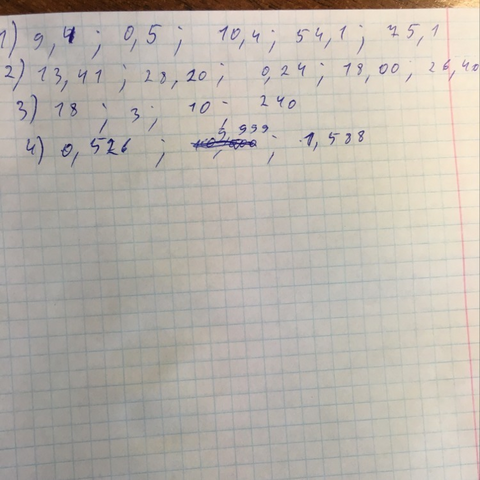 1) 9,4 ; 0,5 ; 10,4 ; 54,1 ; 75,1
2) 13,41 ; 28,20 ; 0,24 ; 18,00 ; 26,40
3) 18 ; 3 ; 10 - 240
4) 0,526 ; 9,999 ; 1,588